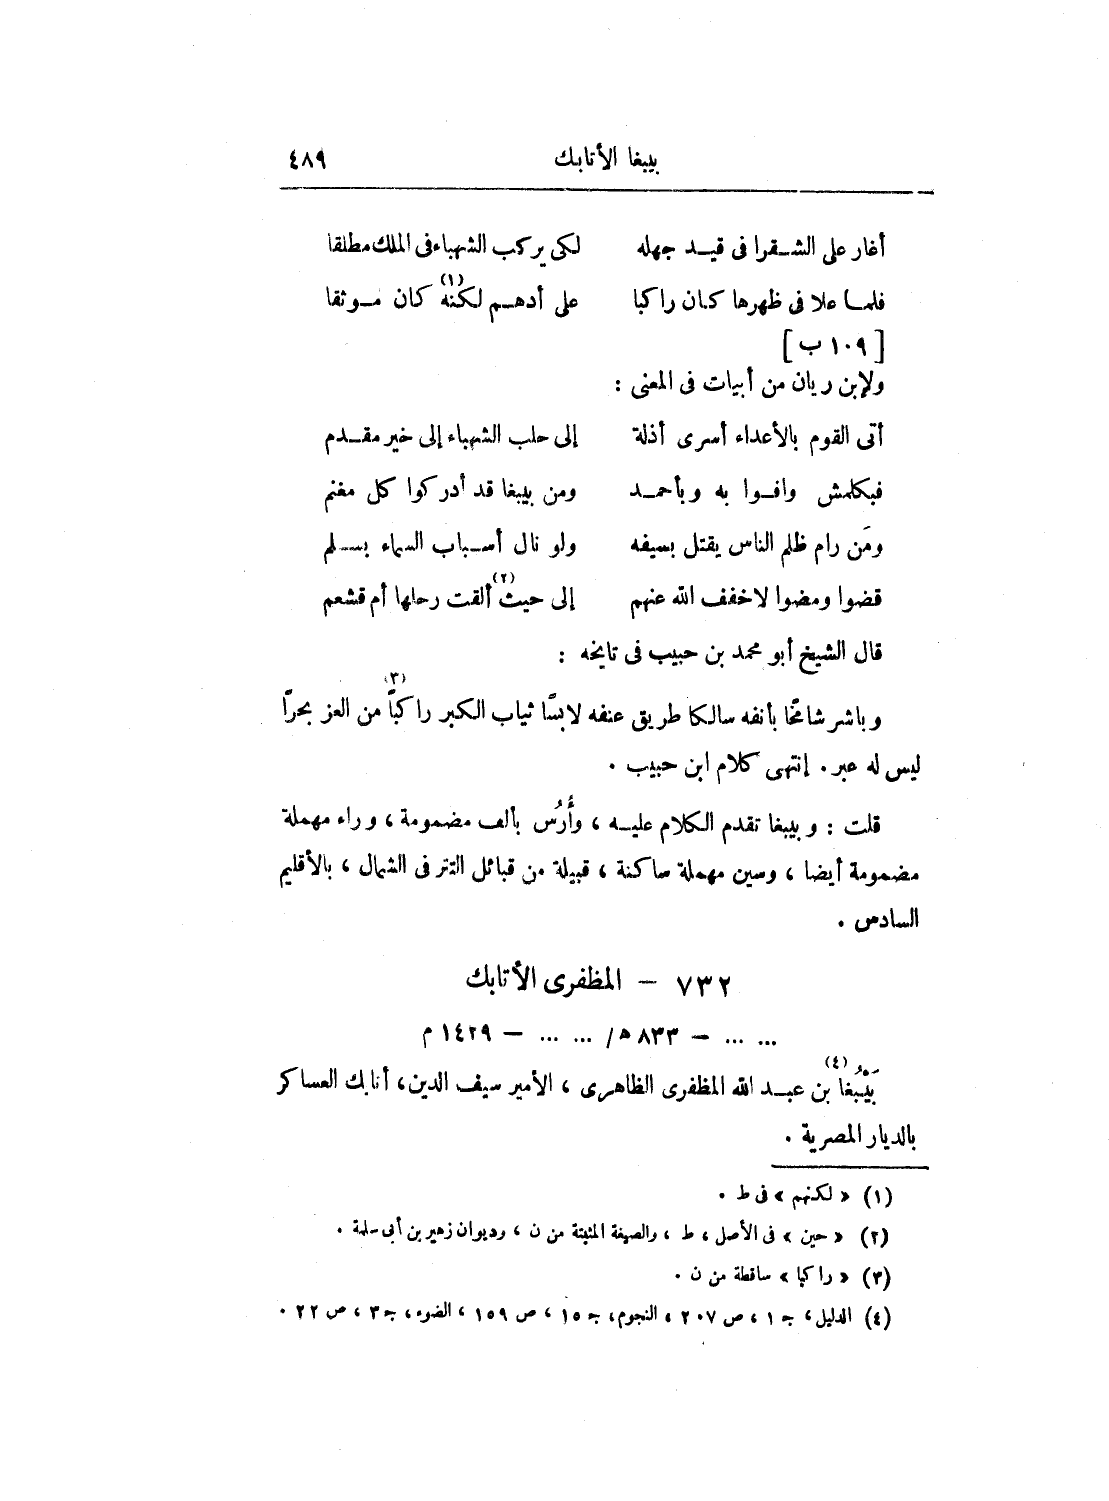 بيبغا الأتابك ٤٨٩
أغار على الشقرا فى قيد جهله لكى يركب الشهباء فى الملك مطلقا
فلما علا فى ظهرها كان راكبا على أدهم لكنه (١) كان موثقا
[ ١٠٩ ب ]
ولإبن ريان من أبيات فى المعنى :
أتى القوم بالأعداء أسرى أذلة إلى حلب الشهباء إلى خير مقدم
فبكلمش وافوا به وبأحمد ومن بيبغا قد أدركوا كل مغنم
ومَن رام ظلم الناس يقتل بسيفه ولو نال أسباب السماء بسلم
قضوا ومضوا لا خفف الله عنهم إلى حيث (٢) ألقت رحلها أم قشعم
قال الشيخ أبو محمد بن حبيب فى تايخه :
وباشر شامخًا بأنفه سالكا طريق عنفه لابسًا ثياب الكبر راكبًا (٣) من العز بحرًا
ليس له عبر . إنتهى كلام ابن حبيب .
قلت : وبيبغا تقدم الكلام عليه ، وأُرُس بألف مضمومة ، وراء مهملة
مضمومة أيضا ، وسين مهملة ساكنة ، قبيلة من قبائل التتر فى الشمال ، بالأقليم
السادس .
٧٣٢ – المظفرى الأتابك
... ... – ٨٣٣ ه/ ... ... – ١٤٢٩ م
بَيْبُغَا (٤) بن عبد الله المظفرى الظاهرى ، الأمير سيف الدين ، أتابك العساكر
بالديار المصرية .
(١) « لكنهم » فى ط .
(٢) « حين » فى الأصل ، ط ، والصيغة المثبتة من ن ، وديوان زهير بن أبى سلمة .
(٣) « راكبا » ساقطة من ن .
(٤) الدليل ، ج ١ ، ص ٢٠٧ ، النجوم ، ج ١٥ ، ص ١٥٩ ، الضوء ، ج ٣ ، ص ٢٢ .